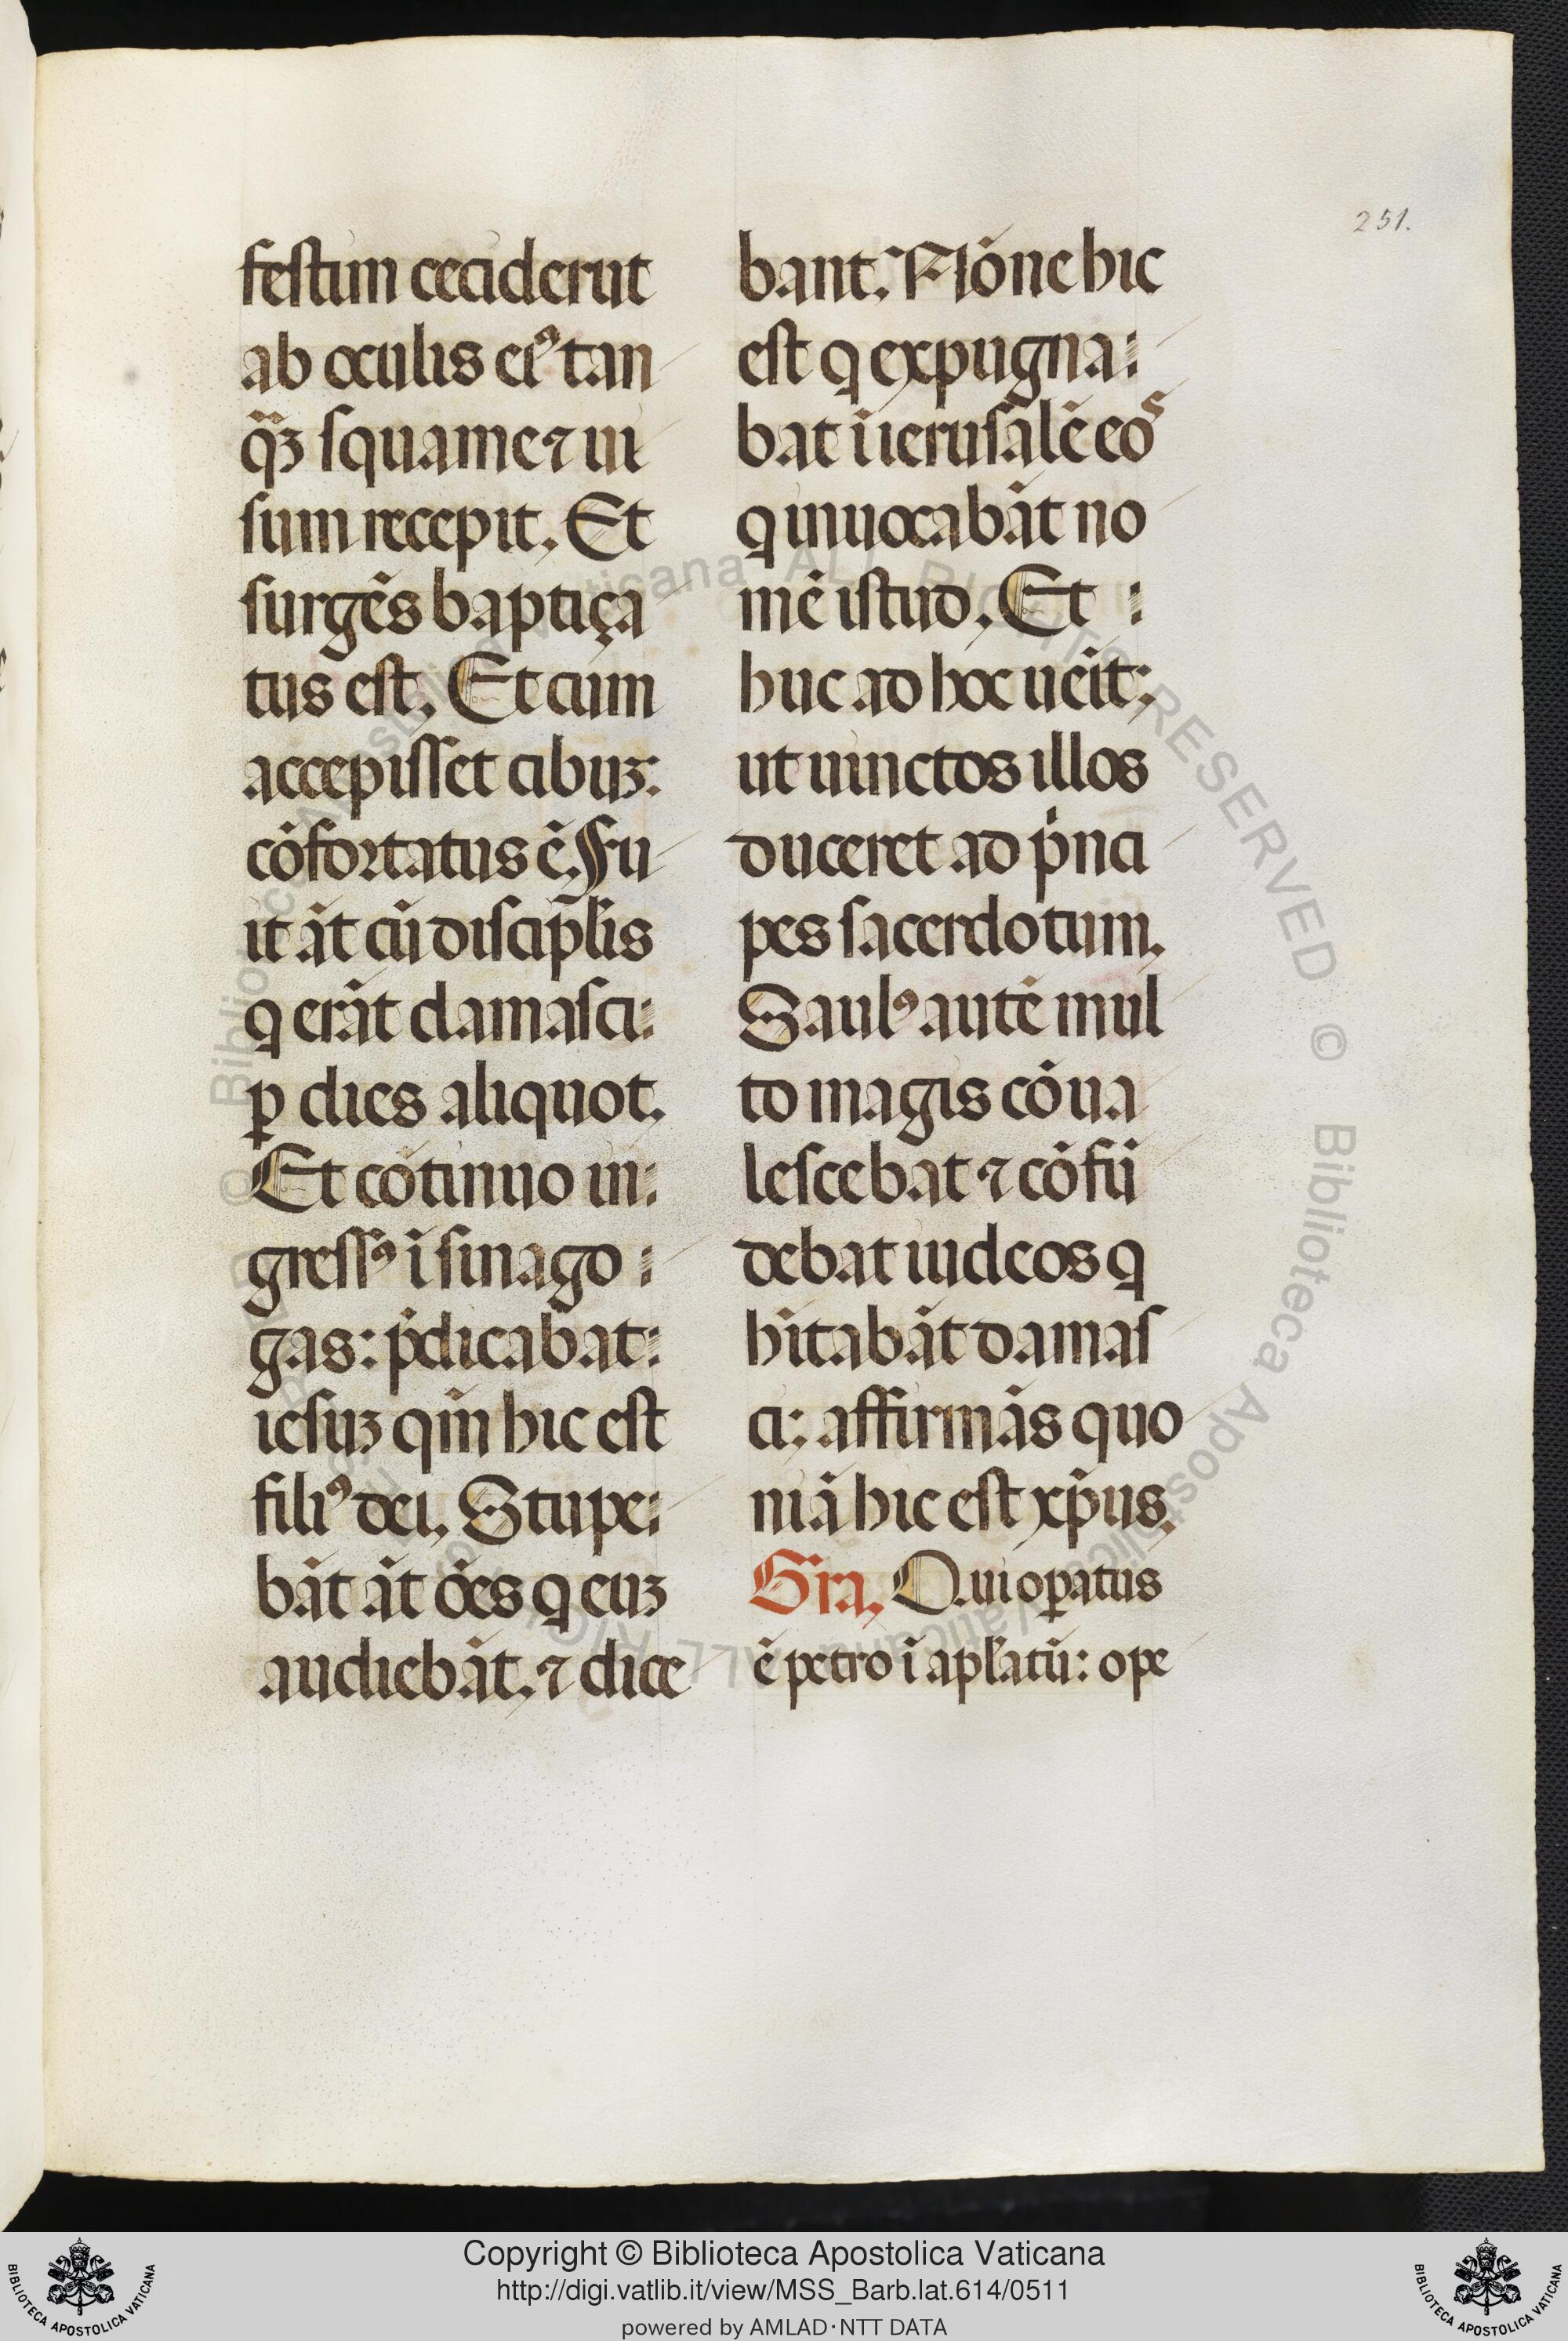 251.
festim ceciderūt
ab oculis eiꝰ tan
q̄ꝫ squame ⁊ ui
sum recepit. Et
surgēs baptiça
tus est. Et cum
accepisset cibuꝫ:
cōfortatus ē. Fu
it āt cū discipl̄is
q erāt damasci:
ꝑ dies aliquot.
Et cōtinuo in:
gressꝰ ī sinago:
gas: p̄dicabat:
iesuꝫ qm̄ hic est
filiꝰ dei. Stupe:
bāt āt ōēs q euꝫ
audiebāt. ⁊ dice
bant. Nōne hic
est q expugna:
bat ī ierusalē eos
q inuocabāt no
mē istud. Et :
huc ad hoc uēit:
ut uinctos illos
duceret ad p̄nci
pes sacerdotum.
Saulꝰ autē mul
to magis cōua
lescebat ⁊ cōfū
debat iudeos q
hītabāt damas
ci: affirmās quo
niā hic est xp̄us.
Gra. Qui oꝑatus
ē petro ī apl̄atū: ope
Copyright © Biblioteca Apostolica Vaticana
http://digi.vatlib.it/view/MSS_Barb.lat.614/0511
powered by AMLAD·NTT DATA
BIBLIOTECA APOSTOLICA VATICANA
BIBLIOTECA APOSTOLICA VATICANA